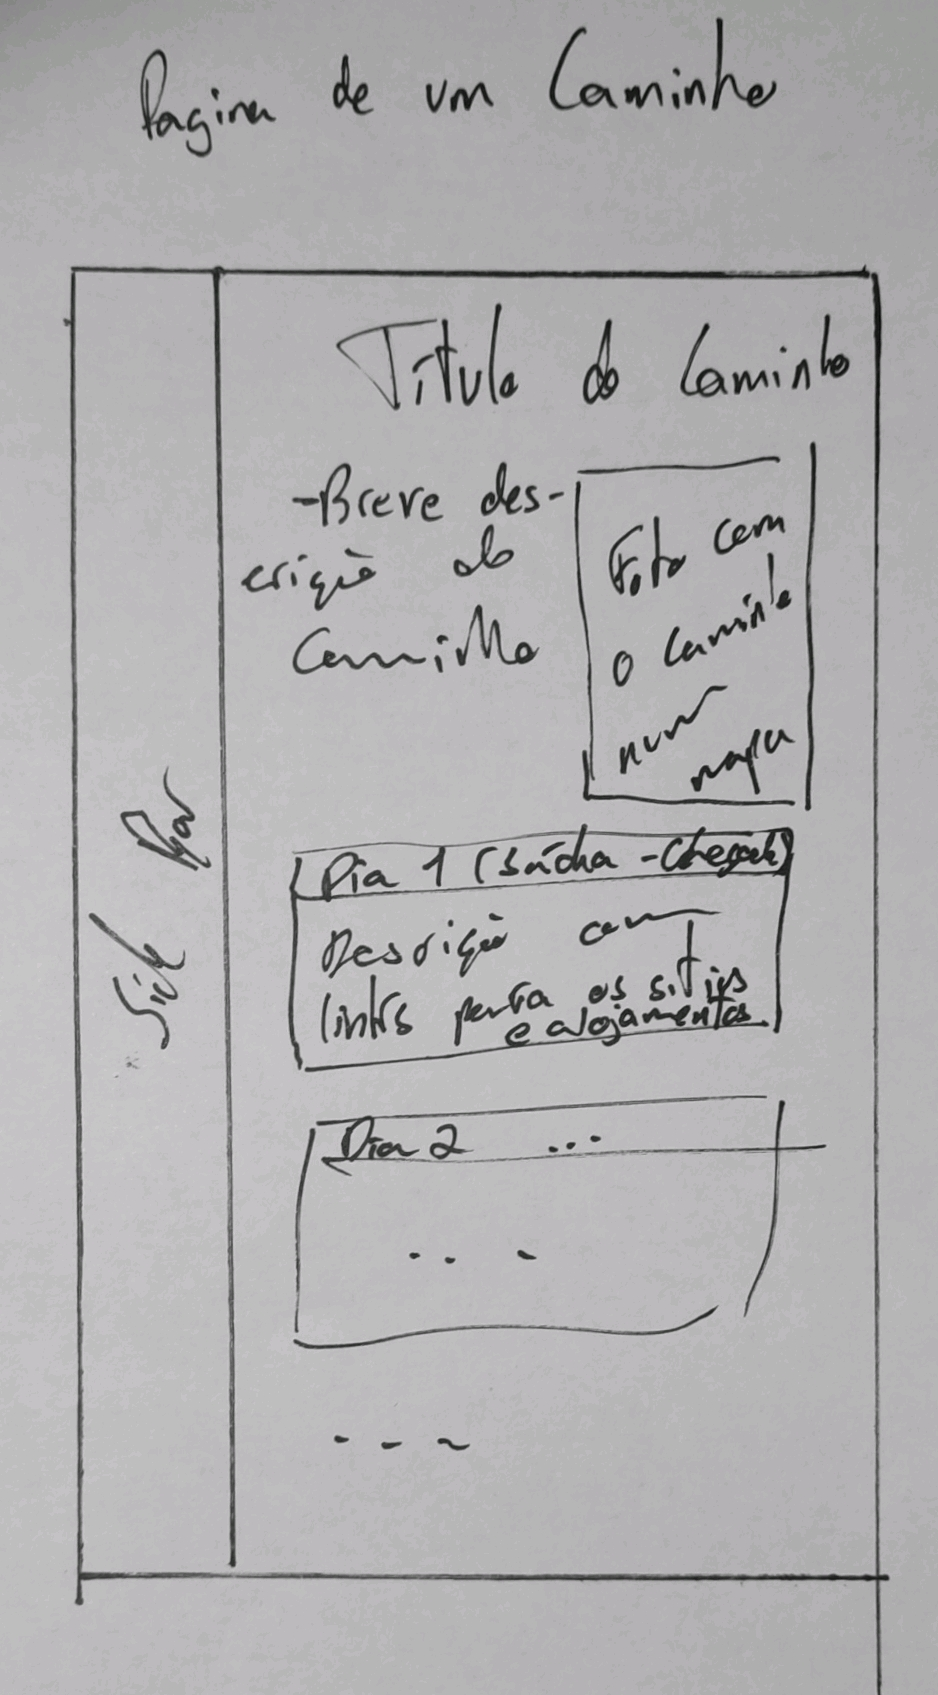 Pagina de um Caminho
Título do Caminho
-Breve des-
crição do
Caminho
Foto com
o Caminho
num
mapa
Side Bar
Dia 1 (Saída - Chegada)
Descrição com
links para os sitios
e alojamentos
Dia 2 ...
...
...